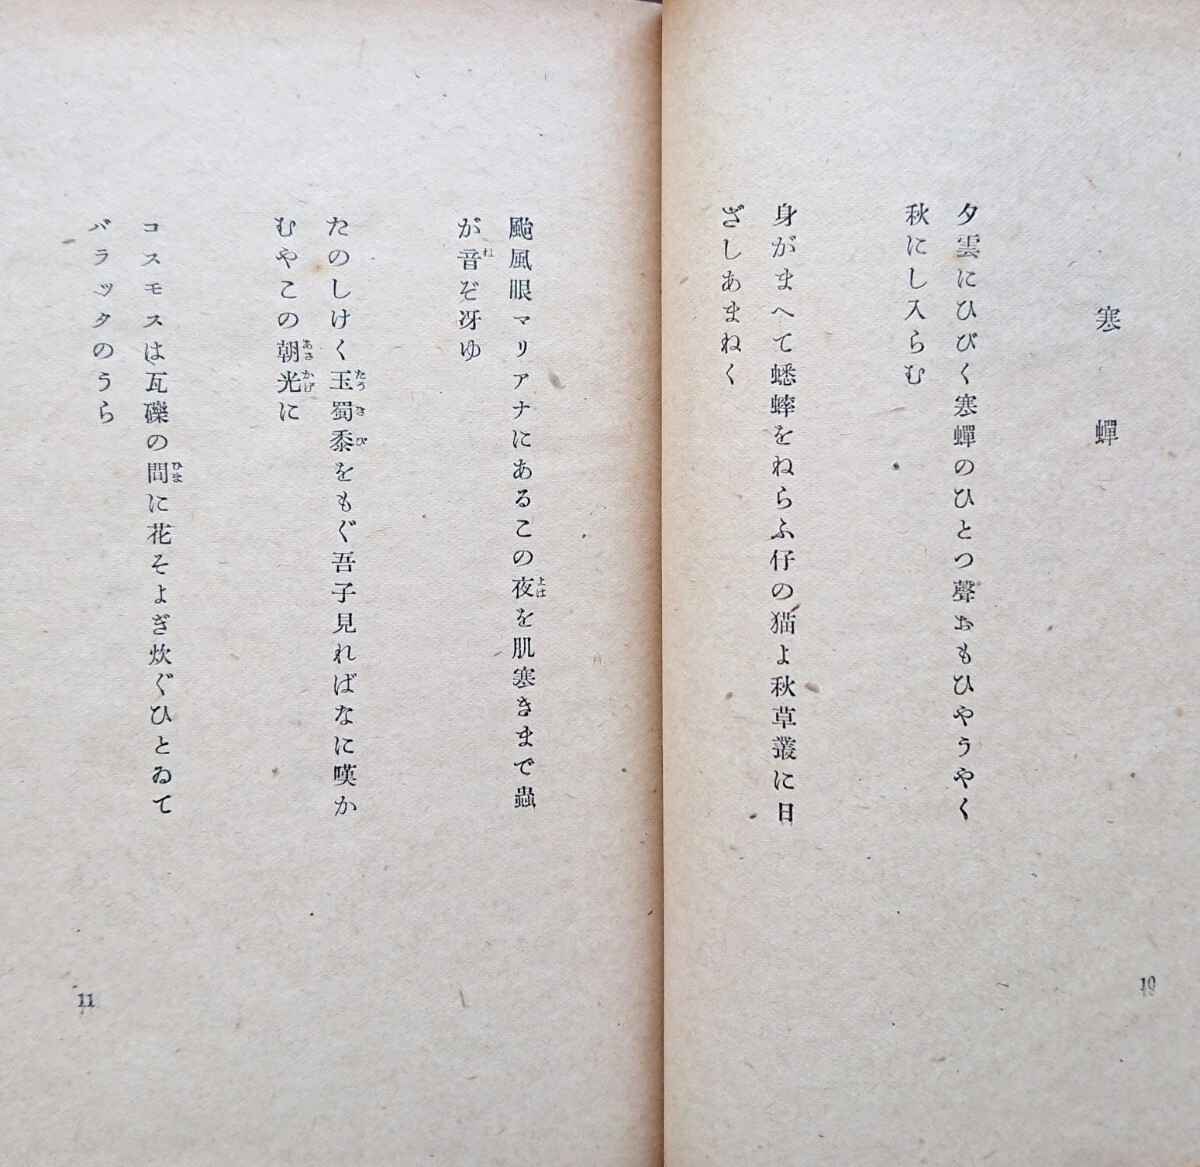 寒蟬
夕雲にひびく寒蟬のひとつ聲おもひやうやく
秋にし入らむ
身がまへて蟋蟀をねらふ仔の猫よ秋草叢に日
ざしあまねく
10
颱風眼マリアナにあるこの夜を肌寒きまで蟲
よは
が音ぞ冴ゆ
ね
たのしけく玉蜀黍をもぐ吾子見ればなに嘆か
たうきび
むやこの朝光に
あさかげ
コスモスは瓦礫の間に花そよぎ炊ぐひとゐて
ひま
バラックのうら
11